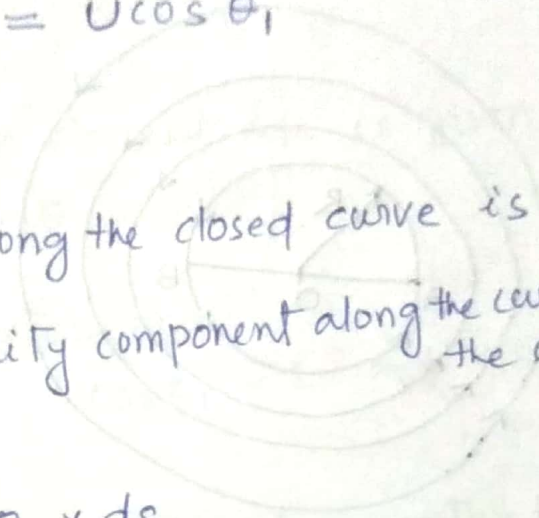 = U cos θ₁
ong the closed curve is
ity component along the cu
the
x ds